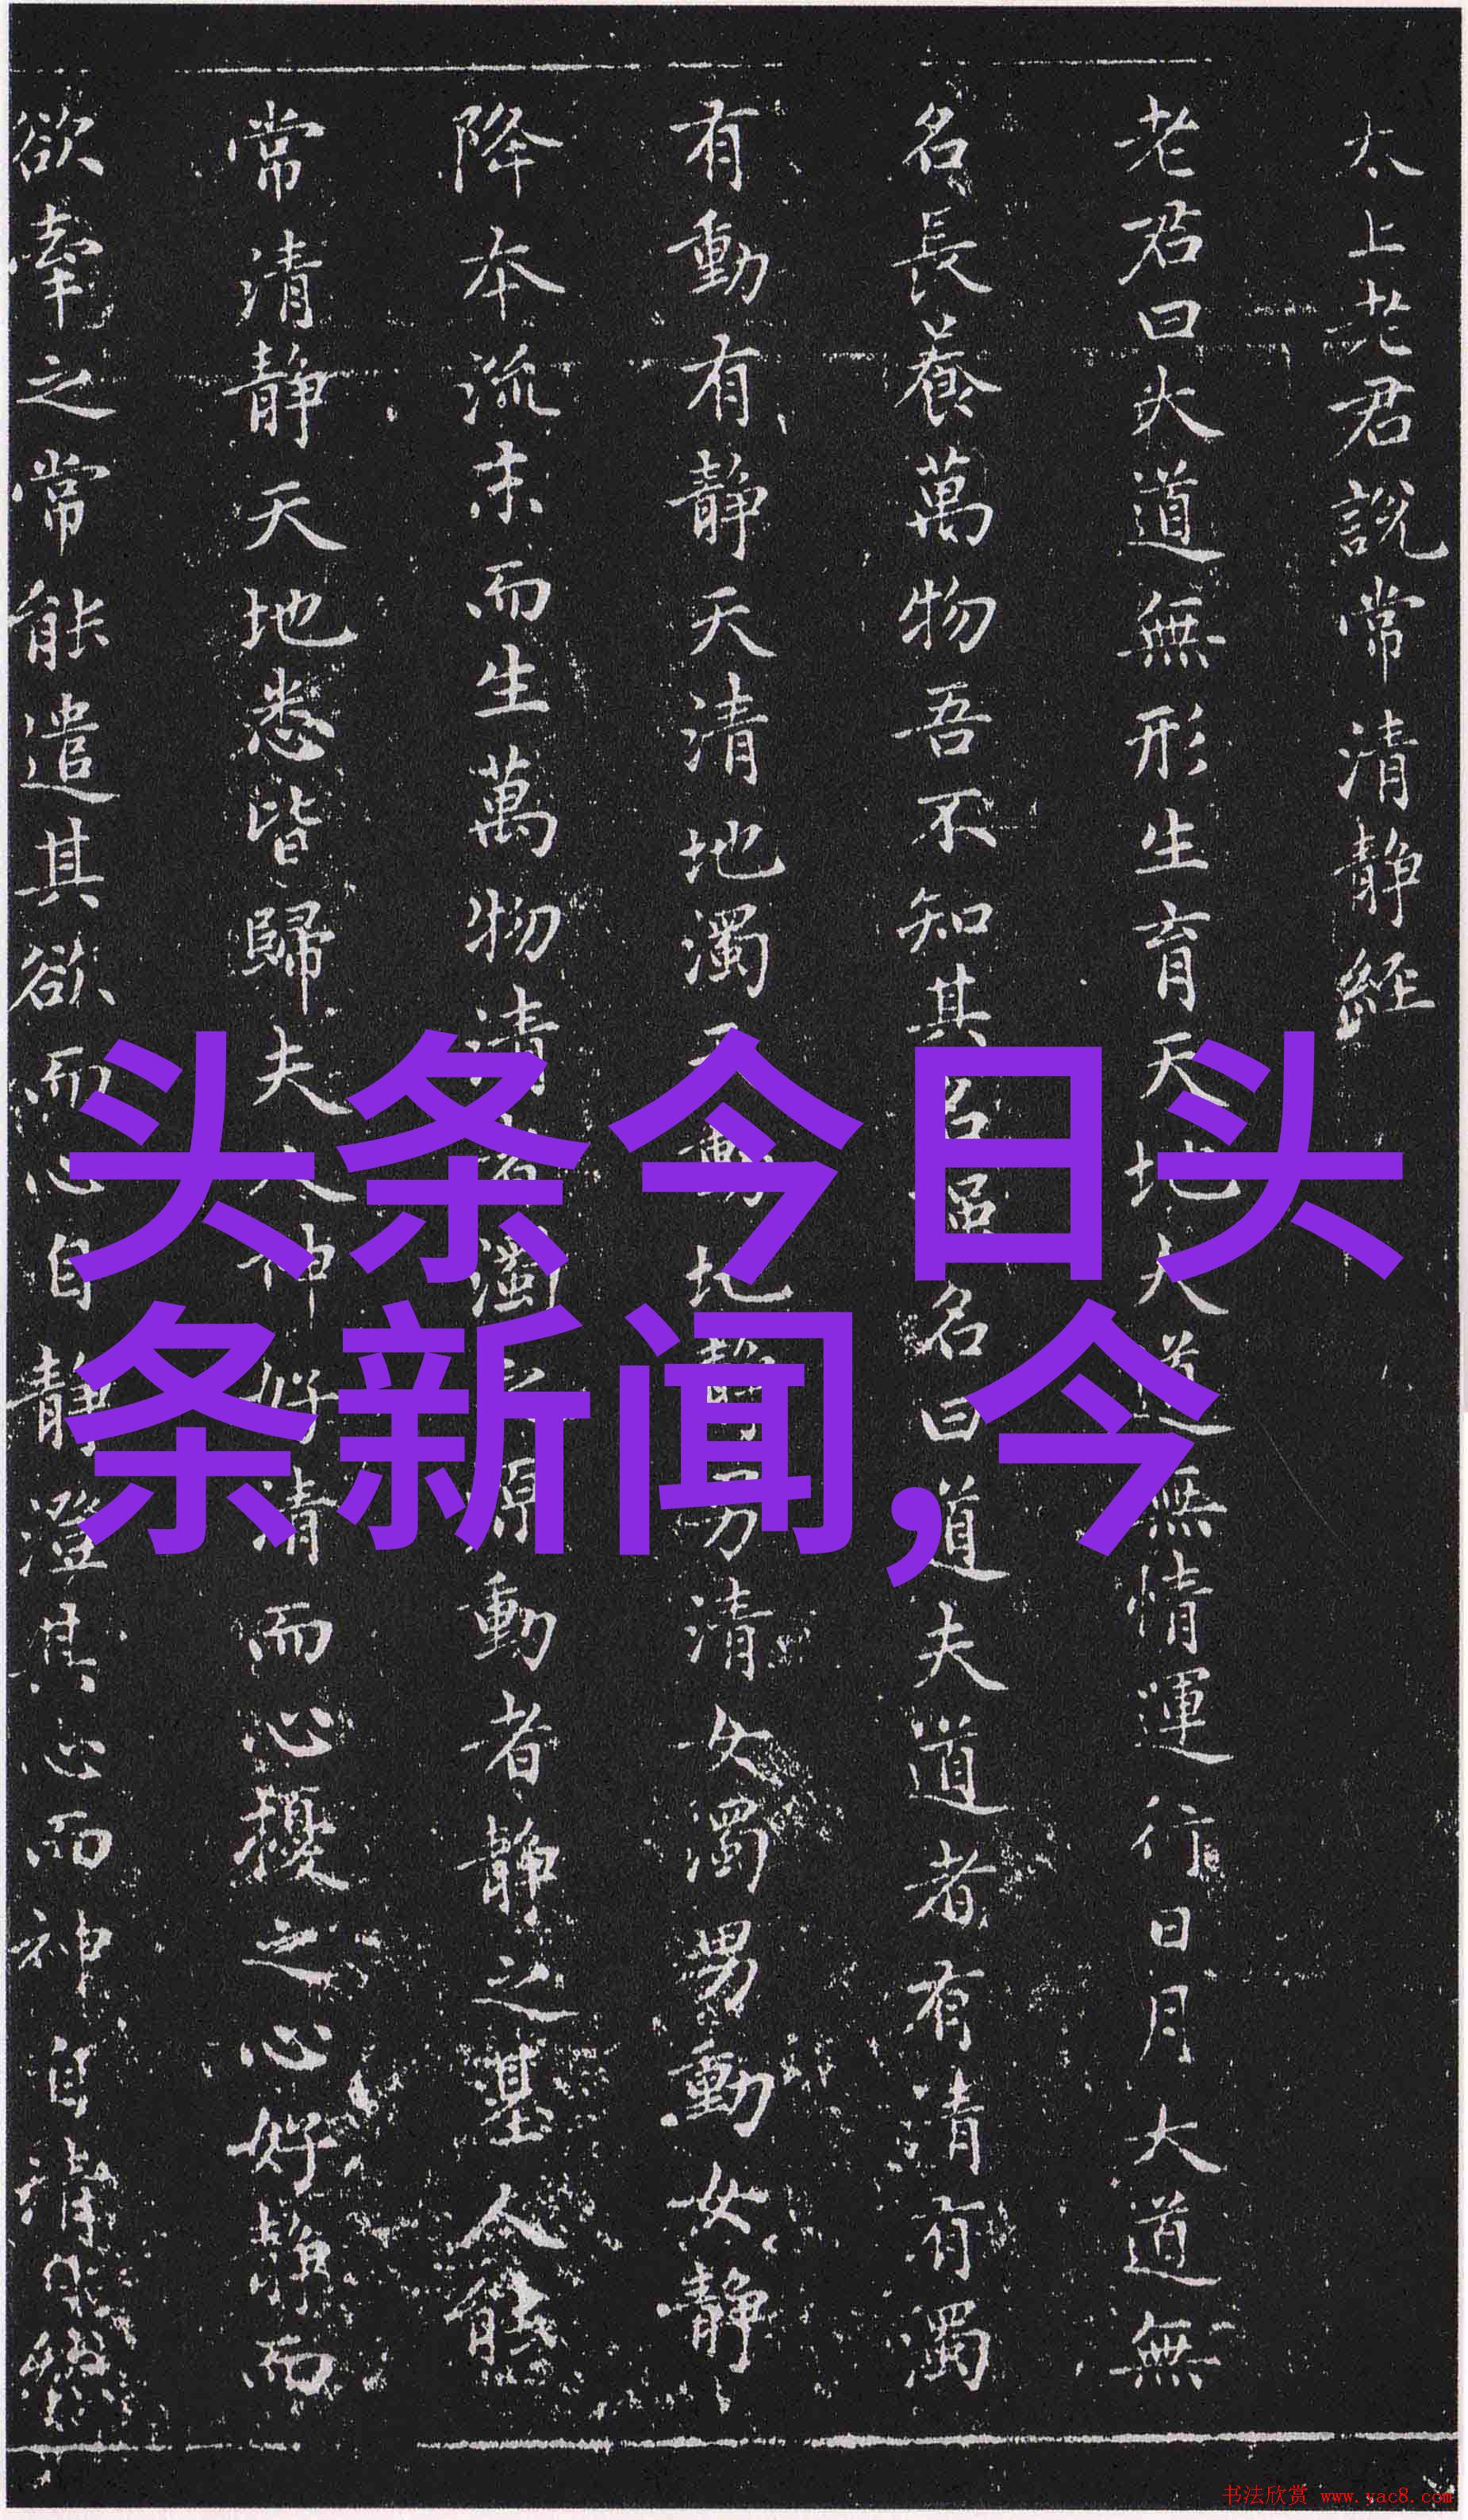 太上老君說常清静經
老君曰大道無形生育天地大道無情運行日月大道無
名長養萬物吾不知其名强名曰道夫道者有清有濁
有動有静天清地濁天動地静男清女濁男動女静
降本流末而生萬物清者濁源動者静之基人能
常清静天地悉皆歸夫人神好清而心擾之心好静而
欲牽之常能遣其欲而心自静澄其心而神自清
头条今日头
条新闻,今
书法欣赏 www.yac8.com